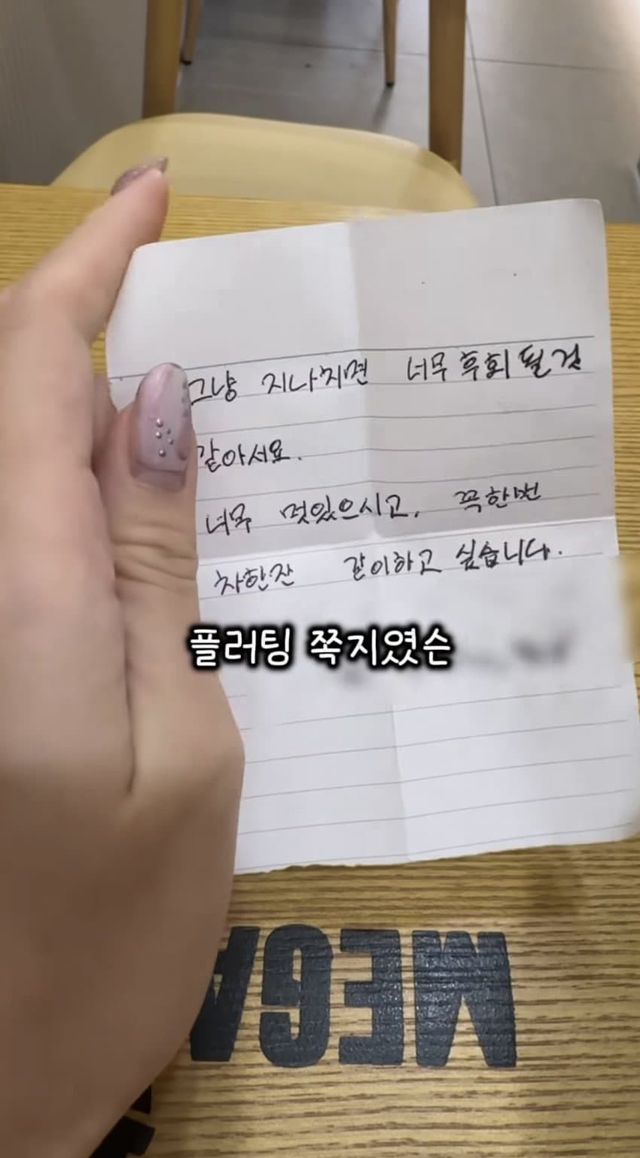 그냥 지나치면 너무 후회 될 것
같아서요.
너무 멋있으시고, 꼭한번
차한잔 같이하고 싶습니다.
플러팅 쪽지였슨
MEGA